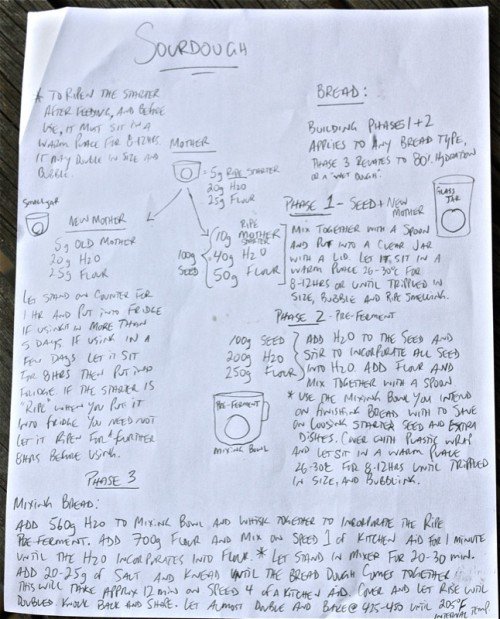 SOURDOUGH
* TO RIPEN THE STARTER
AFTER FEEDING, AND BEFORE
USE, IT MUST SIT IN A
WARM PLACE FOR 8-12HRS.
IT MAY DOUBLE IN SIZE AND
BUBBLE.
MOTHER
= 5g RIPE STARTER
20g H2O
25g FLOUR
SMALL JAR
NEW MOTHER
5g OLD MOTHER
20g H2O
25g FLOUR
100g SEED
10g RIPE MOTHER STARTER
40g H2O
50g FLOUR
LET STAND ON COUNTER FOR
1 HR AND PUT INTO FRIDGE
IF USING IT IN MORE THAN
5 DAYS. IF USING IN A
FEW DAYS LET IT SIT
FOR 8HRS THEN PUT INTO
FRIDGE. IF THE STARTER IS
"RIPE" WHEN YOU PUT IT
INTO FRIDGE YOU NEED NOT
LET IT RIPEN FOR A FURTHER
8HRS BEFORE USING.
BREAD:
BUILDING PHASES 1+2
APPLIES TO ANY BREAD TYPE,
PHASE 3 RELATES TO 80% HYDRATION
OR A "WET DOUGH".
PHASE 1 - SEED + NEW
MOTHER
GLASS
JAR
MIX TOGETHER WITH A SPOON
AND PUT INTO A CLEAR JAR
WITH A LID. LET IT SIT IN A
WARM PLACE 26-30°C FOR
8-12HRS OR UNTIL TRIPPLED IN
SIZE, BUBBLE AND RIPE SMELLING.
PHASE 2 - PRE-FERMENT
100g SEED
200g H2O
250g FLOUR
ADD H2O TO THE SEED AND
STIR TO INCORPORATE ALL SEED
INTO H2O ADD FLOUR AND
MIX TOGETHER WITH A SPOON
* USE THE MIXING BOWL YOU INTEND
ON FINISHING BREAD WITH TO SAVE
ON LOOSING STARTER SEED AND EXTRA
DISHES. COVER WITH PLASTIC WRAP
AND LET SIT IN A WARM PLACE
26-30°C FOR 8-12HRS UNTIL TRIPPLED
IN SIZE, AND BUBBLING.
PRE-FERMENT
MIXING BOWL
PHASE 3
MIXING BREAD:
ADD 560g H2O TO MIXING BOWL AND WHISK TOGETHER TO INCORPORATE THE RIPE
PRE-FERMENT. ADD 700g FLOUR AND MIX ON SPEED 1 OF KITCHEN AID FOR 1 MINUTE
UNTIL THE H2O INCORPORATES INTO FLOUR. * LET STAND IN MIXER FOR 20-30 MIN.
ADD 20-25g OF SALT AND KNEAD UNTIL THE BREAD DOUGH COMES TOGETHER
THIS WILL TAKE APPRX 12 MIN ON SPEED 4 OF A KITCHEN AID. COVER AND LET RISE UNTIL
DOUBLED. KNOCK BACK AND SHAPE. LET ALMOST DOUBLE AND BAKE @ 425-450 UNTIL 205°F
INTERNAL TEMP